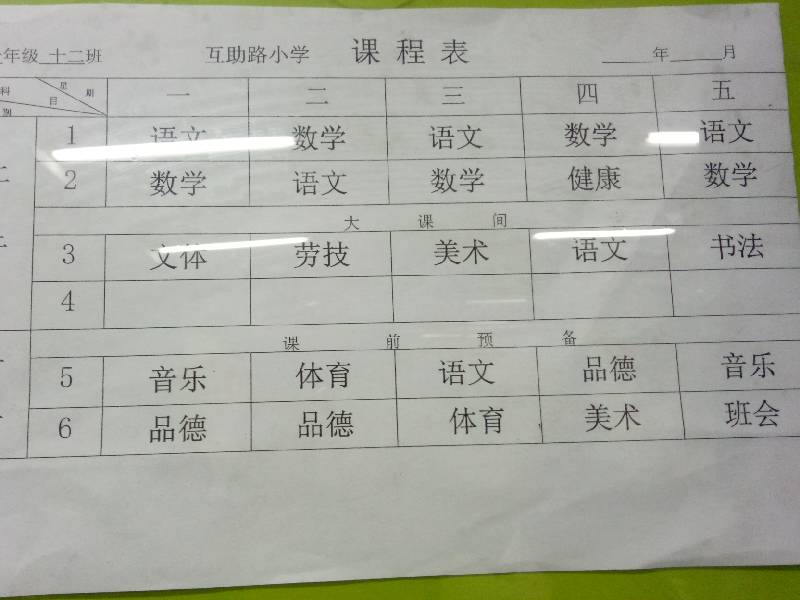 年级 十二班 互助路小学 课程表 ____年____月
科 目 星 期 一 二 三 四 五
别
1 语文 数学 语文 数学 语文
2 数学 语文 数学 健康 数学
大课间
3 文体 劳技 美术 语文 书法
4
课前预备
5 音乐 体育 语文 品德 音乐
6 品德 品德 体育 美术 班会